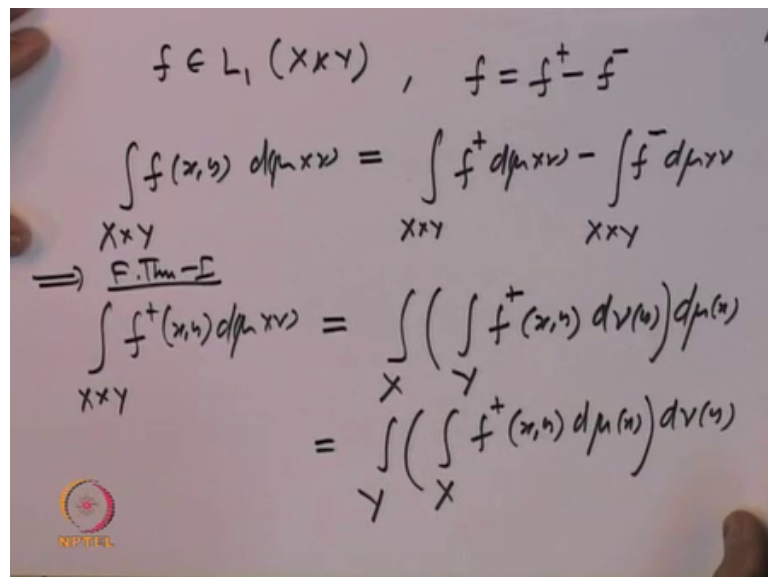 f ∈ L₁ (X×Y) , f = f⁺ - f⁻
∫_{X×Y} f(x,y) d(μ×ν) = ∫_{X×Y} f⁺ dμ×ν) - ∫_{X×Y} f⁻ dμ×ν
⟹ F.Thm-I
∫_{X×Y} f⁺(x,y) d(μ×ν) = ∫_X ( ∫_Y f⁺(x,y) dν(y) ) dμ(x)
= ∫_Y ( ∫_X f⁺(x,y) dμ(x) ) dν(y)
NPTEL